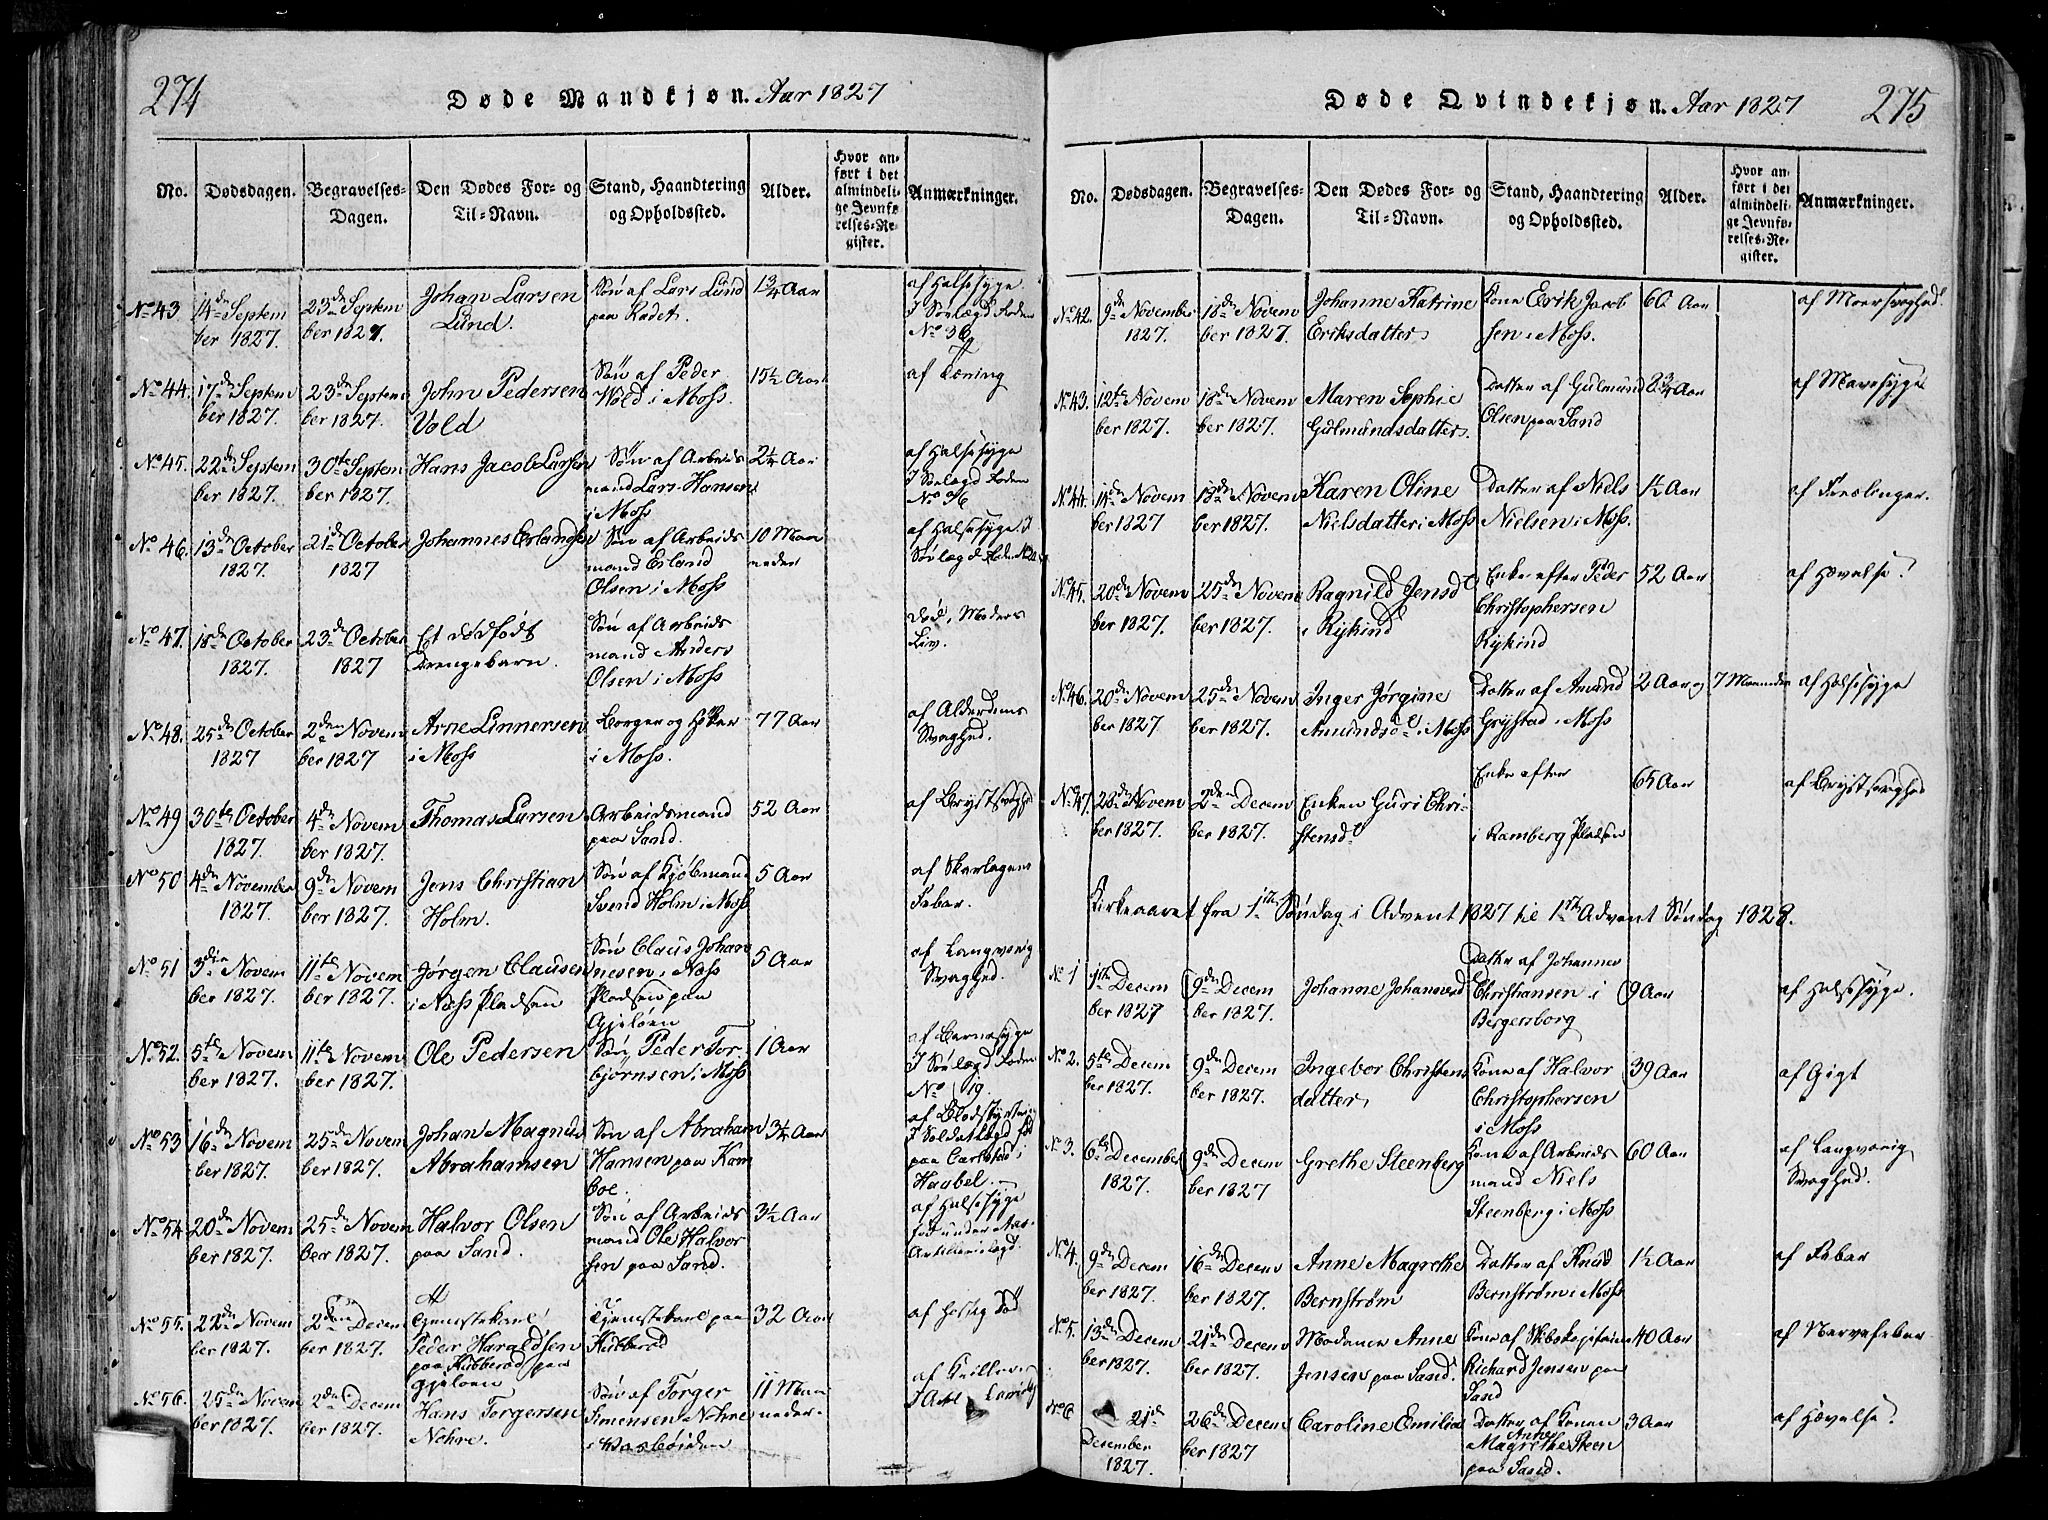 274
Døde Mandkjøn. Aar 1827
No.
Dødsdagen.
Begravelses-
Dagen.
Den Dødes For- og
Til-Navn.
Stand, Haandtering
og Opholdssted.
Alder.
Hvor an-
ført i det
almindeli-
ge Jevnfø-
relses-Re-
gister.
Anmærkninger.
No 43
14de Septem
ber 1827.
23de Septem
ber 1827.
Johan Larsen
Lund.
Søn af Lars Lund
paa Radet.
1 3/4 Aar
af Halssyge
No 44.
17de Septem
ber 1827.
23de Septem
ber 1827.
John Pedersen
Vold
Søn af Peder
Wold i Moss.
15 1/2 Aar
af Tæring
No 45.
22de Septem
ber 1827.
30te Septem
ber 1827.
Hans Jacob Larsen
Søn af Arbeids
mand Lars Hansen
i Moss
2 1/4 Aar
af Halssyge
No 46.
13de October
1827.
21de October
1827
Johannes Erlandsen
Søn af Arbeids
mand Erland
Olsen i Moss
10 Maa
neder
af Halssyge
No 47.
18de October
1827.
23de October
1827
Et dødfødt
Drengebarn.
Søn af Arbeids
mand Anders
Olsen i Moss
død i Moders
Liv.
No 48.
25de October
1827
2den Novem
ber 1827
Arne Linnersen
i Moss
Borger og Høker
i Moss.
77 Aar
af Alderdoms
Svaghed.
No 49
30te October
1827.
4de Novem
ber 1827.
Thomas Larsen
Arbeidsmand
paa Sand.
52 Aar
af Brystsvaghed
No 50
4de November
1827.
9de Novem
ber 1827.
Jens Christian
Holm.
Søn af Kjøbmand
Svend Holm i Moss
5 Aar
af Skarlagens
Feber.
No 51
3die Novem
ber 1827.
11te Novem
ber 1827.
Jørgen Clausen
i Næss Pladsen
Søn Claus Johan
nesen i Næss
Pladsen paa
Gjeløen
5 Aar
af Langvarig
Svaghed.
No 52.
5te Novem
ber 1827.
11te Novem
ber 1827.
Ole Pedersen
Søn Peder Tor-
bjørnsen i Moss
1 Aar
af Barnesyge
No 119.
No 53
16de Novem
ber 1827.
25de Novem
ber 1827.
Johan Magnus
Abrahamsen
Søn af Abraham
Hansen paa Kam
boe.
3 1/4 Aar
Haabøl.
No 54
20de Novem
ber 1827.
25de Novem
ber 1827.
Halvor Olsen
paa Sand.
Søn af Arbeids
mand Ole Halvor
sen paa Sand.
3 1/2 Aar
af Halssyge
No 55.
22de Novem
ber 1827.
2den Decem
ber 1827.
Tjenestekarl
Peder Haraldsen
paa Kubberød paa
Gjeløen
Tjenestekarl paa
Kubberød
32 Aar
af hastig Død
No 56.
25de Novem
ber 1827.
2den Decem
ber 1827.
Hans Torgersen
Nohre.
Søn af Torger
Simensen Nohre
11 Maa
neder.

275
Døde Qvindekjøn. Aar 1827
No.
Dødsdagen.
Begravelses-
Dagen.
Den Dødes For- og
Til-Navn.
Stand, Haandtering
og Opholdssted.
Alder.
Hvor an-
ført i det
almindeli-
ge Jevnfø-
relses-Re-
gister.
Anmærkninger.
No 42.
9de November
1827.
18de Novem
ber 1827.
Johanne Katrine
Eriksdatter
Kone Erik Jacob
sen i Moss.
60 Aar
No 43.
12te Novem
ber 1827.
18de Novem
ber 1827.
Maren Sophie
Gulmundsdatter.
Datter af Gulmund
Olsen paa Sand
8 3/4 Aar
af Mavesyge
No 44.
14de Novem
ber 1827
18de Novem
ber 1827.
Karen Oline
Nielsdatter i Moss
Datter af Niels
Nielsen i Moss.
1 1/2 Aar
No 45.
20de Novem
ber 1827.
25de Novem
ber 1827.
Ragnild Jensd
i Rykind
Enke efter Peder
Christophersen
Rykind
52 Aar
af Hævelse.
No 46.
20de Novem
ber 1827
25de Novem
ber 1827.
Inger Jørgine
Amundsd i Moss
Datter af Amund
Grystad i Moss
2 Aar og 7 Maaneder
af Halssyge
No 47.
28de Novem
ber 1827.
2den Decem
ber 1827.
Enken Guri Chri-
stensd
Enke efter
i Ramberg Pladsen
65 Aar
af Brystsvaghed
Kirkeaaret fra 1ste Søndag i Advent 1827 til 1ste Advent Søndag 1828.
No 1
1ste Decem
ber 1827
9de Decem
ber 1827.
Johanne Johannesd
Datter af Johannes
Christiansen i
Bergersborg
9 Aar
af Halssyge.
No 2.
5te Decem
ber 1827.
9de Decem
ber 1827.
Ingebor Christens
datter
Kone af Halvor
Christophersen
i Moss
39 Aar
af Gigt
No 3.
6te December
1827.
9de Decem
ber 1827
Grethe Steenberg
Kone af Arbeids
mand Niels
Steenberg i Moss
60 Aar
af Langvarig
Svaghed.
No 4.
9de Decem
ber 1827.
16de Decem
ber 1827.
Anne Magrethe
Bernstrøm
Datter af Knud
Bernstrøm i Moss
1 1/2 Aar
af Feber
No 5.
13de Decem
ber 1827.
21de Decem
ber 1827.
Madame Anne
Jensen paa Sand.
Kone af Skibskapitaine
Richard Jensen paa
Sand
40 Aar
af Nervefeber
No 6
21de
December
1827.
26de Decem
ber 1827
Caroline Emilia
Datter af Konen
Anne
Magrethe Steen
paa Sand.
3 Aar
af Hævelse.